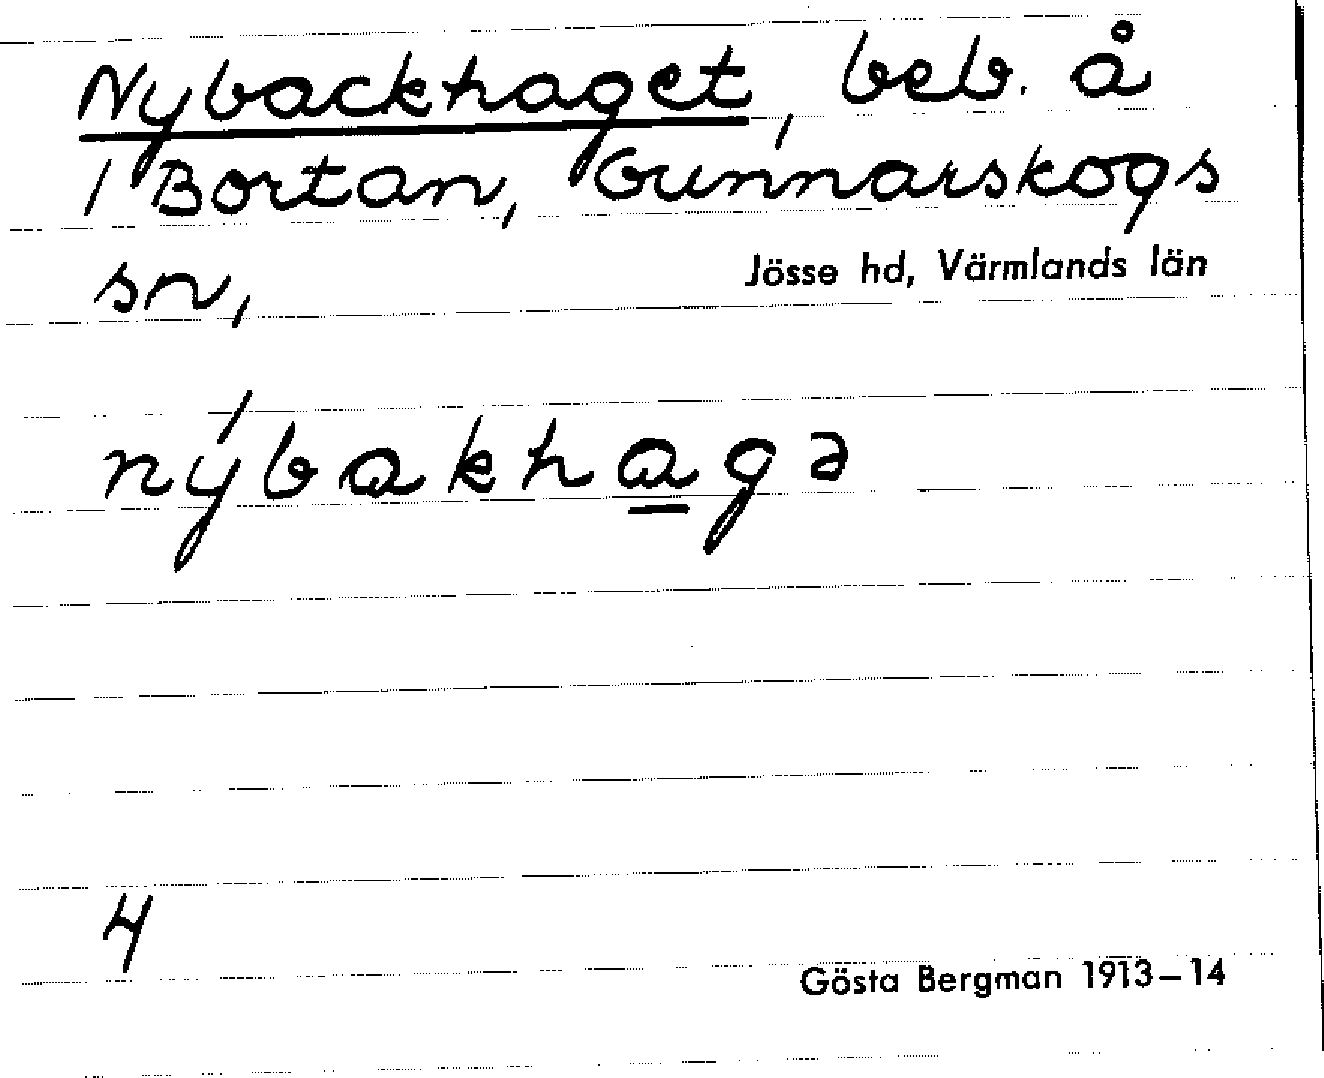 Nybackhaget, beb. å
/ Bortan, Gunnarskogs
sn,
Jösse hd, Värmlands län
nýbakhagə
4
Gösta Bergman 1913–14